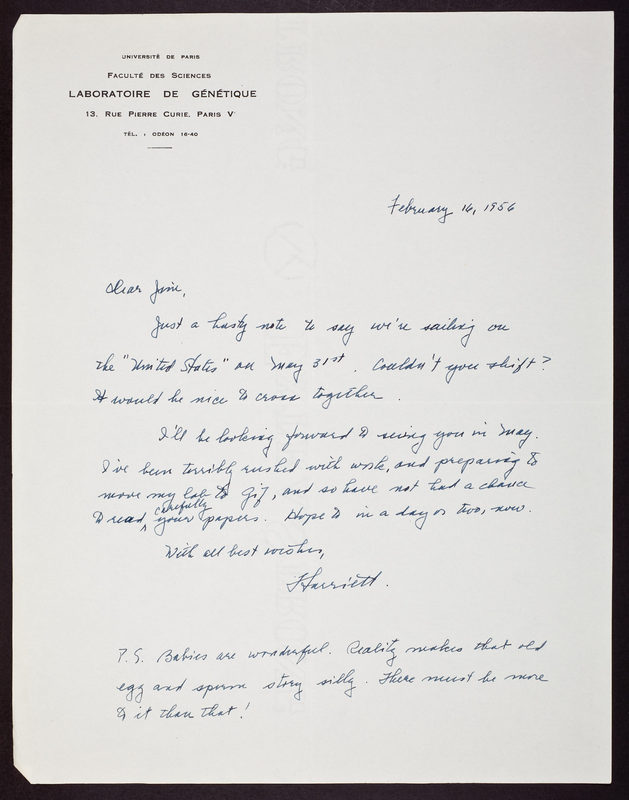 UNIVERSITÉ DE PARIS
FACULTÉ DES SCIENCES
LABORATOIRE DE GÉNÉTIQUE
13, RUE PIERRE CURIE, PARIS V
TÉL. : ODÉON 16-40
February 16, 1956
Dear Jim,
Just a hasty note to say we're sailing on
the "United States" on May 31st. Couldn't you shift?
It would be nice to cross together.
I'll be looking forward to seeing you in May.
I've been terribly rushed with work, and preparing to
move my lab to Gif, and so have not had a chance
to read carefully your papers. Hope to in a day or two, now.
With all best wishes,
Harriett.
P.S. Babies are wonderful. Reality makes that old
egg and sperm story silly. There must be more
to it than that!